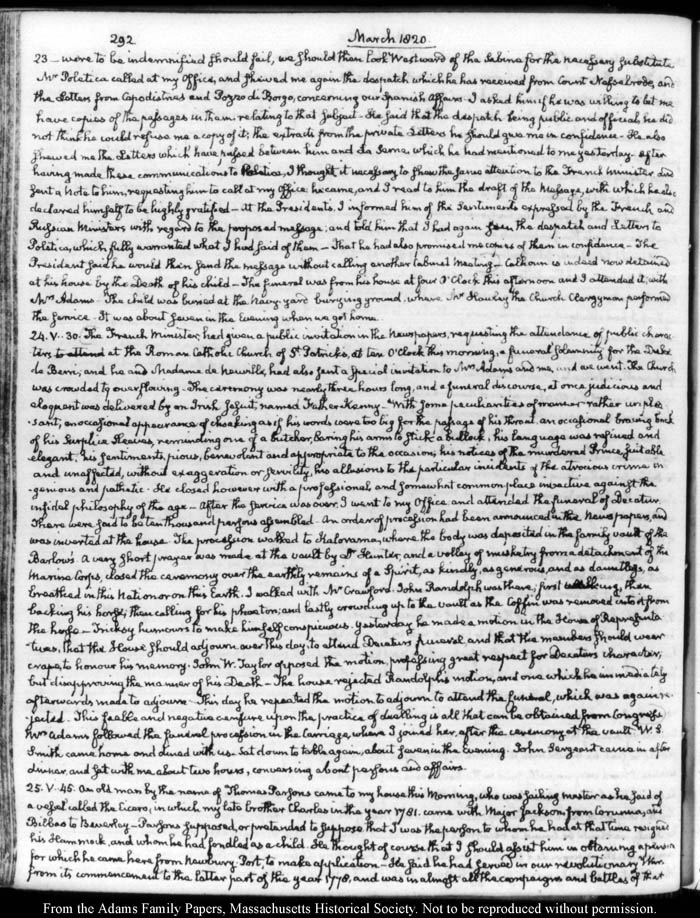 292 March 1820.
23 — were to be indemnified should fail, we should then look Westward of the Sabine for the necessary substitute
Mr Poletica called at my Office, and shewed me again the despatch which he has received from Count Nesselrode, and
the Letters from Capodistrias and Pozzo di Borgo, concerning our Spanish Affairs. I asked him if he was willing to let me
have copies of the passages in them relating to that subject. He said that the despatch being public and official, he did
not think he could refuse me a copy of it; the extracts from the private Letters he should give me in confidence. He also
shewed me the Letters which have passed between him and La Serna, which he had mentioned to me yesterday. After
having made these communications to Poletica, I thought it necessary to shew the same attention to the French Minister, and
sent a Note to him, requesting him to call at my Office. he came, and I read to him the draft of the Message, with which he also
declared himself to be highly gratified — At the Presidents. I informed him of the sentiments expressed by the French and
Russian Ministers with regard to the proposed message; and told him that I had again seen the despatch and Letters to
Poletica, which fully warranted what I had said of them — That he had also promised me copies of them in confidence — The
President said he would then send the message without calling another Cabinet Meeting — Calhoun is indeed now detained
at his house by the Death of his child — The funeral was from his house at four O'Clock this afternoon and I attended it, with
Mrs Adams. The child was buried at the Navy-yard burying ground, where Mr Hawley the Church Clergyman performed
the service. It was about seven in the Evening when we got home.
24. V..30. The French Minister, had given a public invitation in the Newspapers, requesting the attendance of public charac-
ters to attend at the Roman Catholic Church of St Patrick's, at ten O'Clock this morning, a funeral solemnity for the Duke
de Berri; and he and Madame de Neuville, had also sent a special invitation to Mrs Adams and me, and we went. The Church
was crowded to overflowing. The ceremony was nearly three hours long, and a funeral discourse, at once judicious and
eloquent was delivered by an Irish Jesuit, named Father Kenny. With some peculiarities of manner rather unplea-
sant; an occasional appearance of choaking as if his words were too big for the passage of his throat. an occasional bracing back
of his Surplice Sleeves, reminding one of a butcher, baring his arms to stick a bullock; his language was refined and
elegant; his sentiments, pious, benevolent and appropriate to the occasion; his notices of the murdered Prince, suitable
and unaffected, without exaggeration or servility, his allusions to the particular incidents of the atrocious crime in-
genious and pathetic. He closed however with a professional, and somewhat common place invective against the
infidel philosophy of the age — After the service was over, I went to my Office and attended the funeral of Decatur.
There were said to be ten thousand persons assembled. An order of procession had been announced in the Newspapers, and
was inverted at the house. The procession walked to Kalorama, where the body was deposited in the family vault of the
Barlow's. A very short prayer was made at the vault by Dr Hunter, and a volley of musketry from a detachment of the
Marine Corps, closed the ceremony over the earthly remains of a Spirit, as kindly, as generous, and as dauntless, as
breathed in this Nation or on this Earth. I walked with Mr Crawford. John Randolph was there; first walking, then
backing his horse, then calling for his phaeton, and lastly crowding up to the vault as the coffin was removed into it from
the hearse — Tricksy humours to make himself conspicuous. Yesterday he made a motion in the House of Representa-
tives, that the House should adjourn over this day, to attend Decatur's funeral, and that the members should wear
crape, to honour his memory. John W. Taylor opposed the motion, professing great respect for Decatur's character,
but disapproving the manner of his Death — The house rejected Randolph's motion, and one which he immediately
afterwards made to adjourn. This day he repeated the motion to adjourn to attend the funeral, which was again re-
jected. This feeble and negative censure upon the practice of duelling is all that can be obtained from Congress.
Mrs Adams followed the funeral procession in the Carriage, where I joined her, after the ceremony at the vault. W. S.
Smith came home and dined with us. Sat down to table again, about seven in the evening. John Sergeant came in after
dinner, and sat with me about two hours, conversing about persons and affairs.
25. V. 45. An old man by the name of Thomas Parsons came to my house this Morning, who was sailing master as he said of
a vessel called the Cicero, in which my late brother Charles in the year 1781. came with Major Jackson from Corunna, and
Bilbao to Beverley — Parsons supposed, or pretended to suppose that I was the person to whom he had at that time resigned
his Hammock, and whom he had fondled as a child. He thought of course that I should assist him in obtaining a pension
for which he came here from Newbury Port, to make application — He said he had served in our revolutionary War
from its commencement to the latter part of the year 1778, and was in almost all the campaigns and battles of that
From the Adams Family Papers, Massachusetts Historical Society. Not to be reproduced without permission.